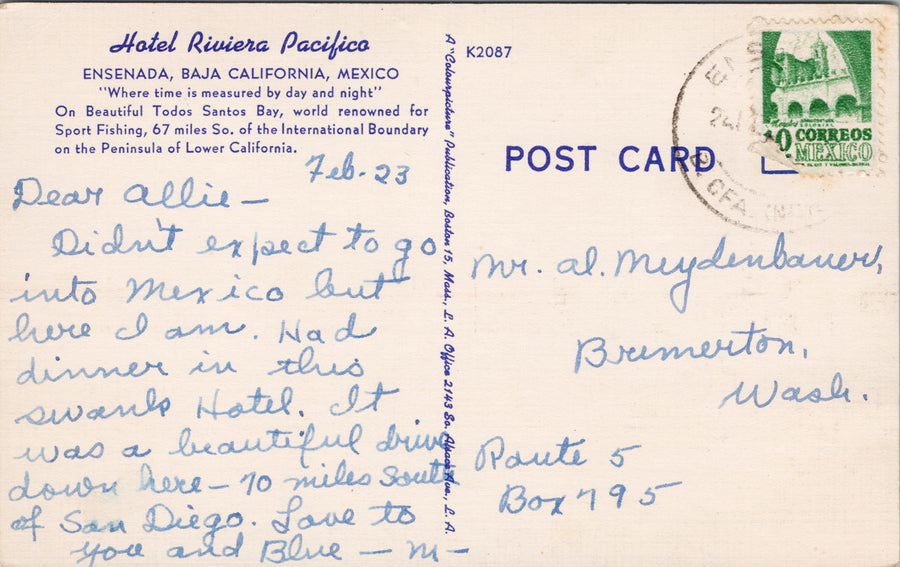 Hotel Riviera Pacifico
ENSENADA, BAJA CALIFORNIA, MEXICO
"Where time is measured by day and night"
On Beautiful Todos Santos Bay, world renowned for
Sport Fishing, 67 miles So. of the International Boundary
on the Peninsula of Lower California.
Feb. 23
Dear Allie —
Didn't expect to go
into Mexico but
here I am. Had
dinner in this
swank Hotel. It
was a beautiful drive
down here — 70 miles South
of San Diego. Love to
you and Blue — M —
A "Colourpicture" Publication, Boston 15, Mass., L. A. Office 2143 So. Ave., L. A.
K2087
POST CARD
CORREOS
MEXICO
B. CFA.
Mr. Al. Meydenbauer,
Bremerton,
Wash.
Route 5
Box 795